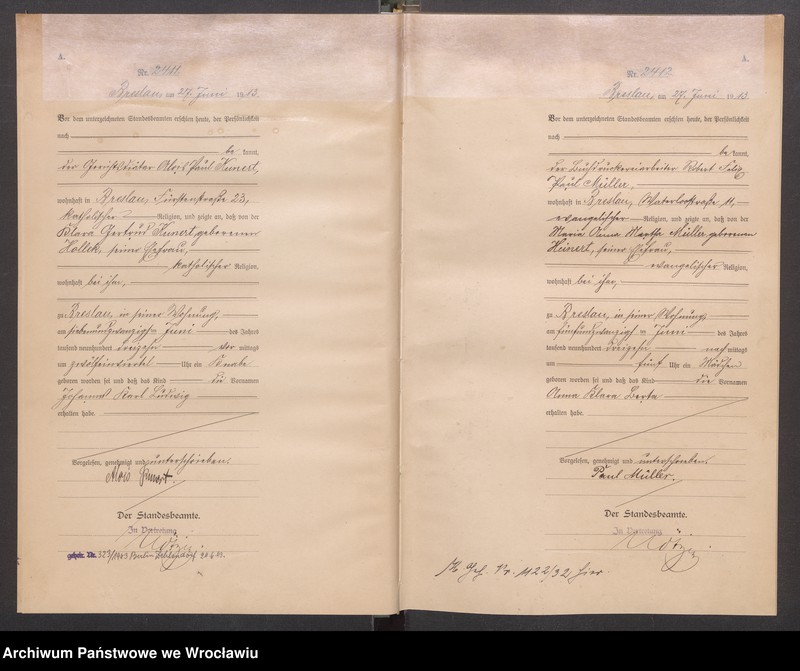 A.
Nr. 2411
Breslau, am 27. Juni 1913.
Vor dem unterzeichneten Standesbeamten erschien heute, der Persönlichkeit
nach
be kannt,
der Gerichtsdiätar Alois Paul Kunert,
wohnhaft in Breslau, Fürstenstraße 23,
katholischer Religion, und zeigte an, daß von der
Klara Gertrud Kunert, geborenen
Hollek, seiner Ehefrau,
katholischer Religion,
wohnhaft bei ihm,
zu Breslau, in seiner Wohnung,
am siebenundzwanzigsten Juni des Jahres
tausend neunhundert dreizehn vor mittags
um zwölfeinviertel Uhr ein Knabe
geboren worden sei und daß das Kind die Vornamen
Johannes Karl Ludwig
erhalten habe.
Vorgelesen, genehmigt und unterschrieben.
Alois Kunert.
Der Standesbeamte.
In Vertretung
geheir. Nr. 323/1943 Berlin
A.
Nr. 2412
Breslau, am 27. Juni 1913
Vor dem unterzeichneten Standesbeamten erschien heute, der Persönlichkeit
nach
be kannt,
der Buchdruckereiarbeiter Robert Felix
Paul Müller,
wohnhaft in Breslau, Waterloostraße 11,
evangelischer Religion, und zeigte an, daß von der
Maria Anna Martha Müller geborenen
Heinert, seiner Ehefrau,
evangelischer Religion,
wohnhaft bei ihm,
zu Breslau, in seiner Wohnung,
am fünfundzwanzigsten Juni des Jahres
tausend neunhundert dreizehn nach mittags
um fünf Uhr ein Mädchen
geboren worden sei und daß das Kind die Vornamen
Anna Klara Berta
erhalten habe.
Vorgelesen, genehmigt und unterschrieben.
Paul Müller.
Der Standesbeamte.
In Vertretung
Nr. 1122/32 hier.
Archiwum Państwowe we Wrocławiu